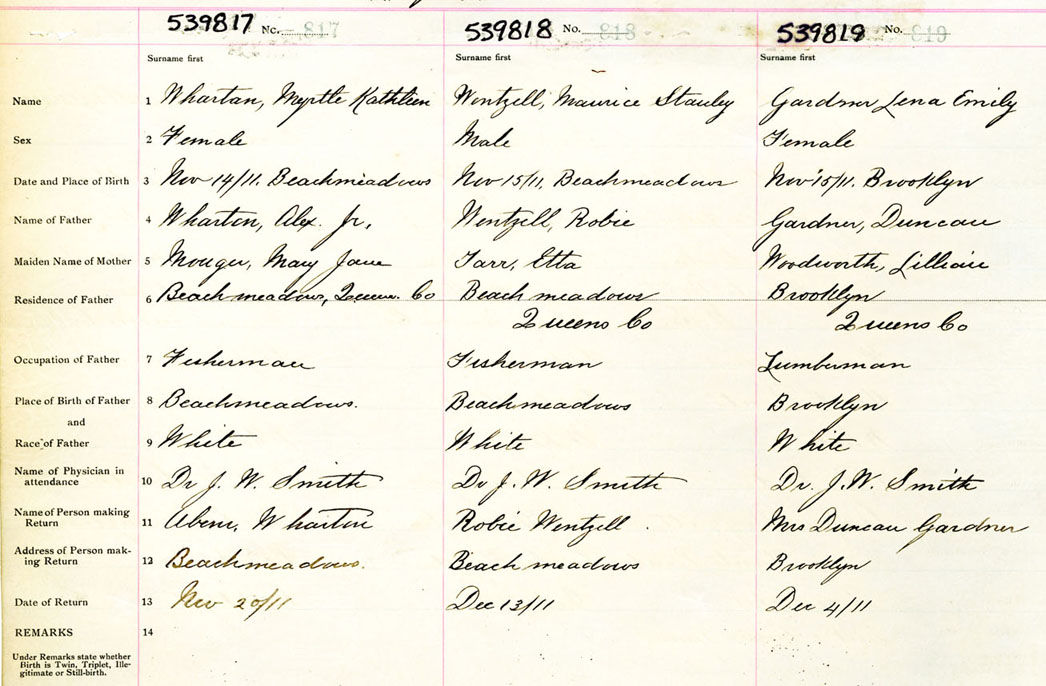 539817 No. 817 539818 No. 818 539819 No. 819
Surname first Surname first Surname first
Name 1 Whartan, Myrtle Kathleen Wentzell, Maurice Stanley Gardner Lena Emily
Sex 2 Female Male Female
Date and Place of Birth 3 Nov 14/11. Beachmeadows Nov 15/11, Beachmeadows Nov 15/11. Brooklyn
Name of Father 4 Wharton, Alex. Jr. Wentzell, Robie Gardner, Duncan
Maiden Name of Mother 5 Mary Jane Tarr, Etta Woodworth, Lillian
Residence of Father 6 Beach meadows, Queens. Co Beach meadows Brooklyn
Queens Co Queens Co
Occupation of Father 7 Fisherman Fisherman Lumberman
Place of Birth of Father 8 Beachmeadows. Beachmeadows Brooklyn
and
Race of Father 9 White White White
Name of Physician in
attendance 10 Dr J. W. Smith Dr J. W. Smith Dr. J. W. Smith
Name of Person making
Return 11 Wharton Robie Wentzell Mrs Duncan Gardner
Address of Person mak-
ing Return 12 Beachmeadows. Beach meadows Brooklyn
Date of Return 13 Nov 20/11 Dec 13/11 Dec 4/11
REMARKS 14
Under Remarks state whether
Birth is Twin, Triplet, Ille-
gitimate or Still-birth.